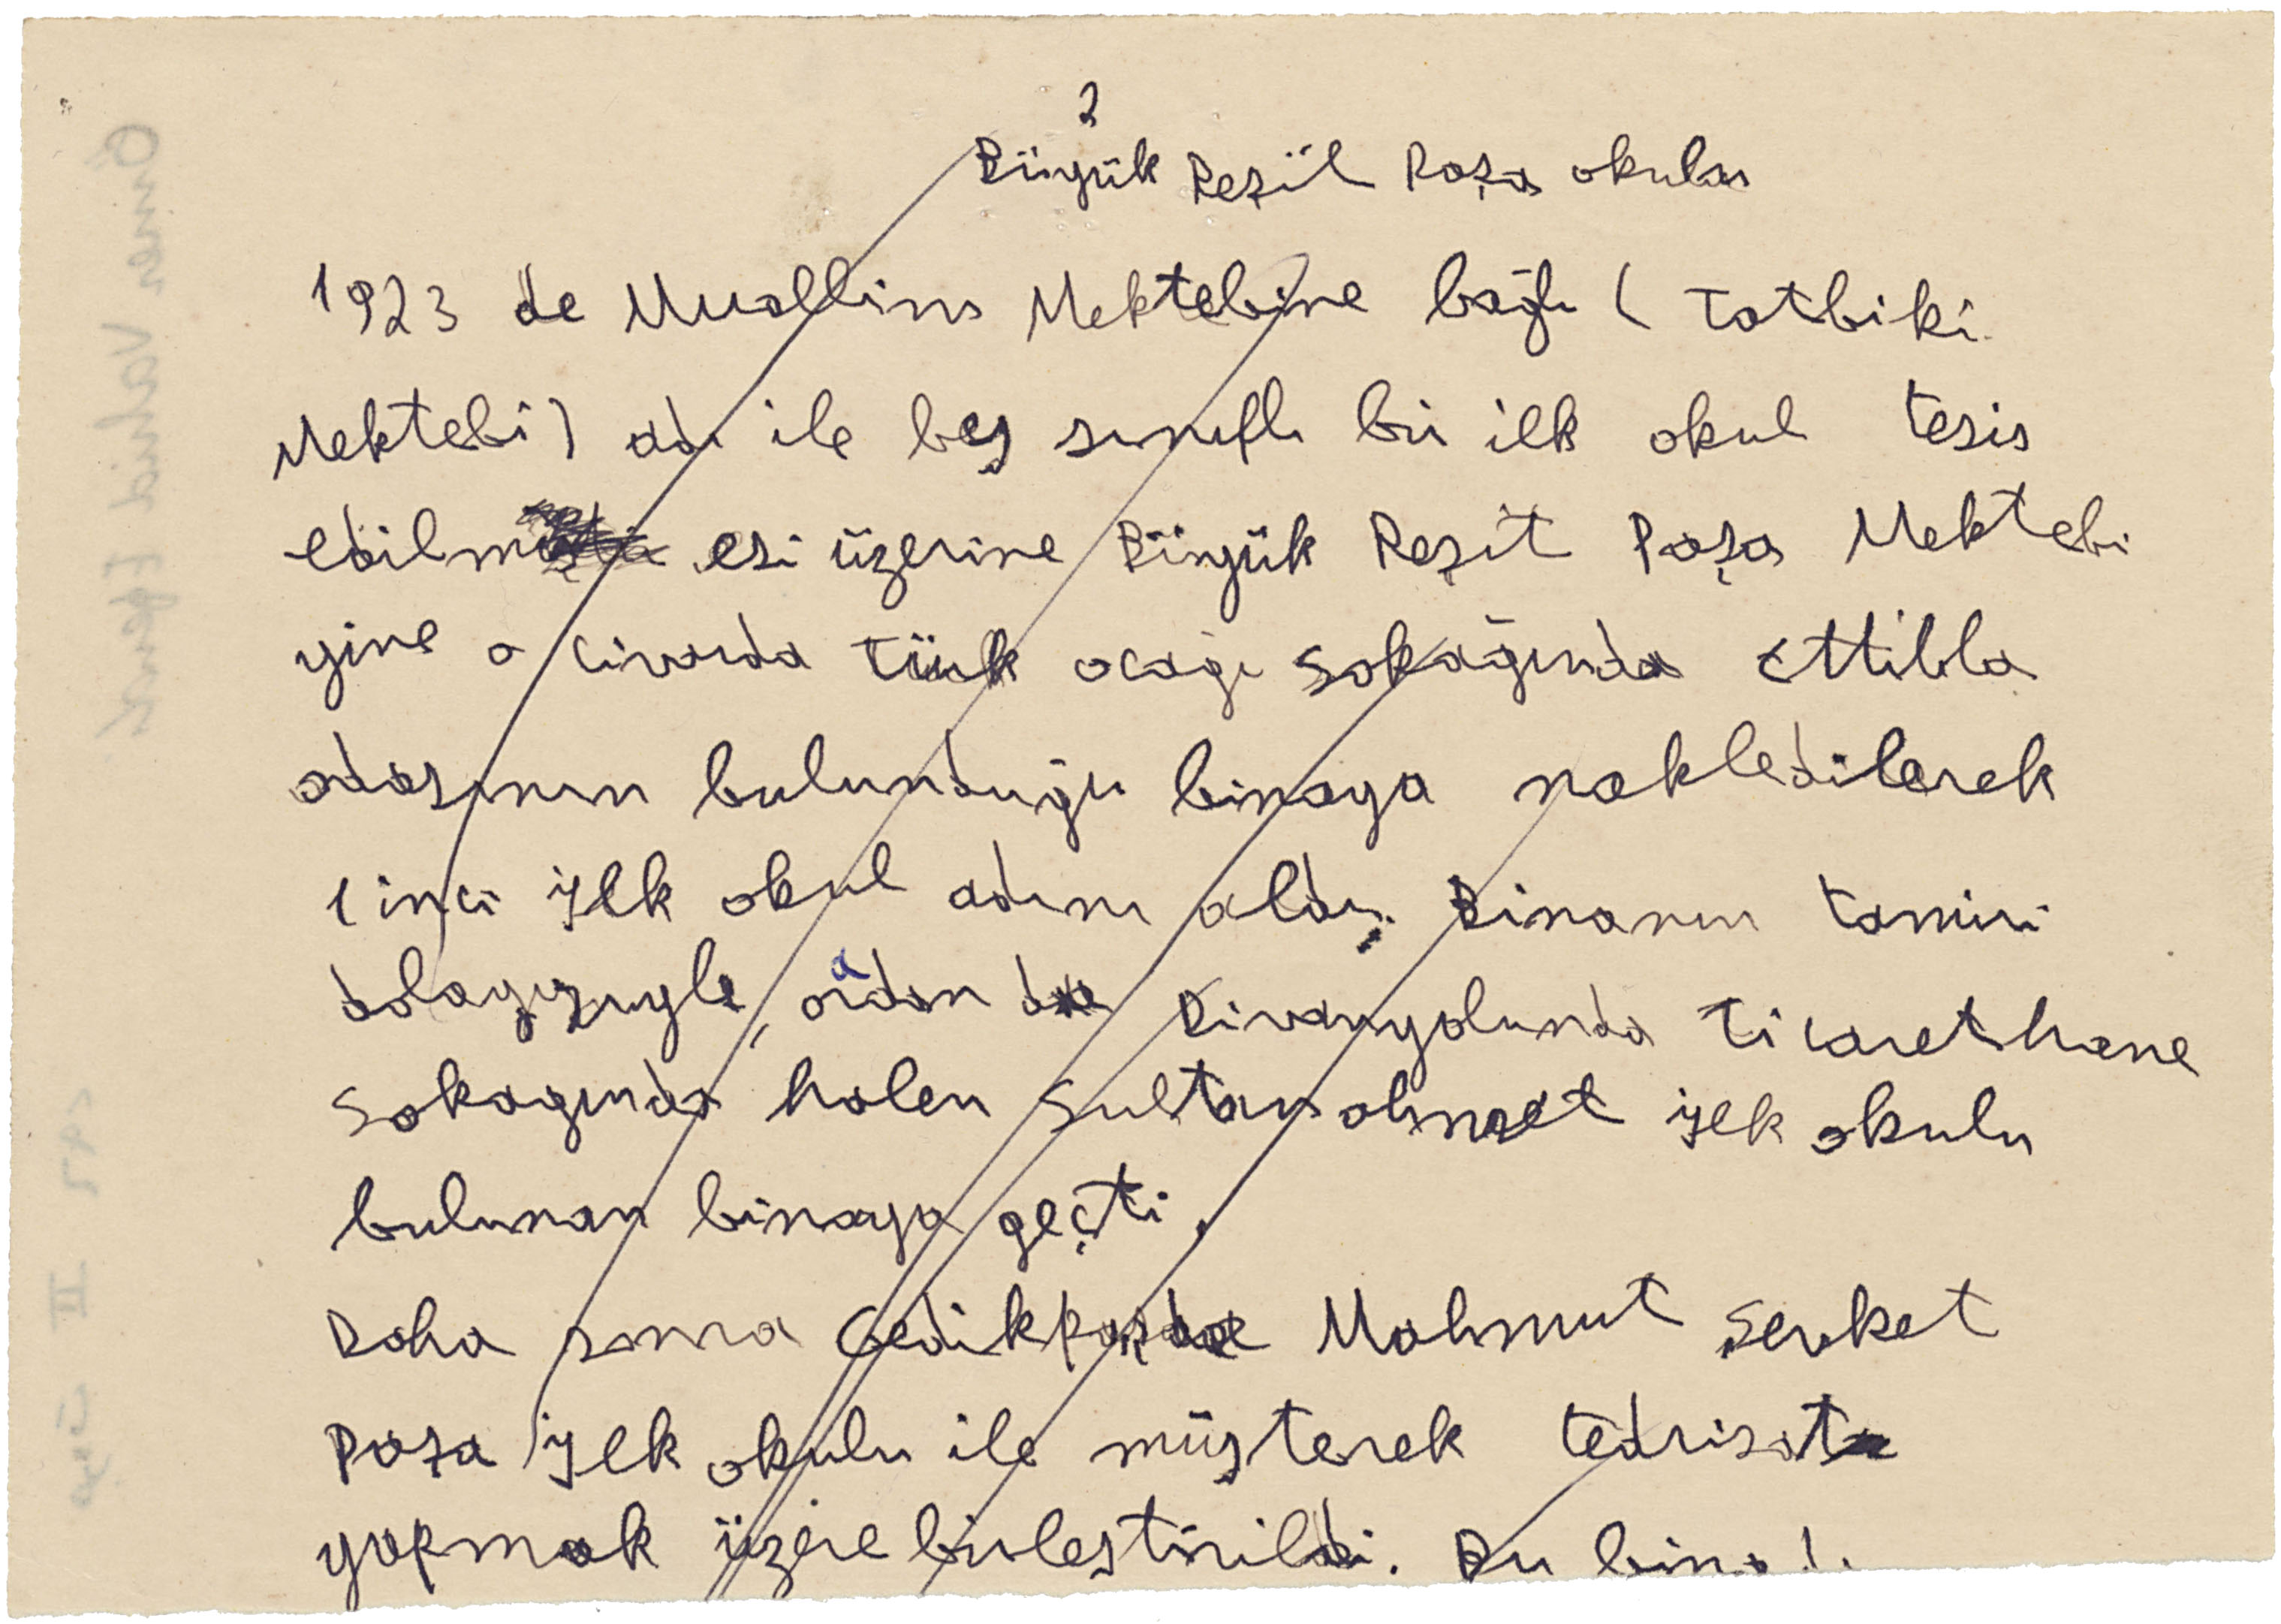 2
Büyük Reşit Paşa okulu
1923 de Muallim Mektebine bağlı ( Tatbiki
Mektebi) adı ile beş sınıflı bir ilk okul tesis
edilm esi üzerine Büyük Reşit Paşa Mektebi
yine o civarda Türk ocağı sokağında Attilla
odasının bulunduğu binaya nakledilerek
1 inci İlk okul adını aldı. Binanın tamiri
dolayısıyle, ordan da Divanyolunda Ticarethane
sokagında halen Sultanahmet İlk okulu
bulunan binaya geçti.
Daha sonra Gedikpaşada Mahmut Şevket
Paşa İlk okulu ile müşterek tedrisat
yapmak üzere birleştirildi. Bu bina
Ömer Vahid
II